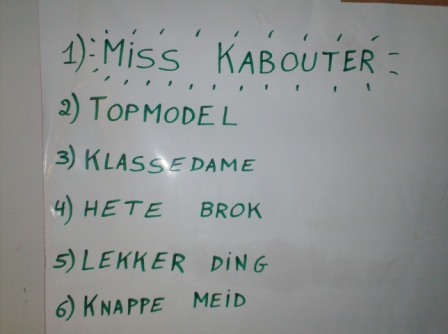 1) MiSS KABOUTER
2) TOPMODEL
3) KLASSEDAME
4) HETE BROK
5) LEKKER DiNG
6) KNAPPE MEiD